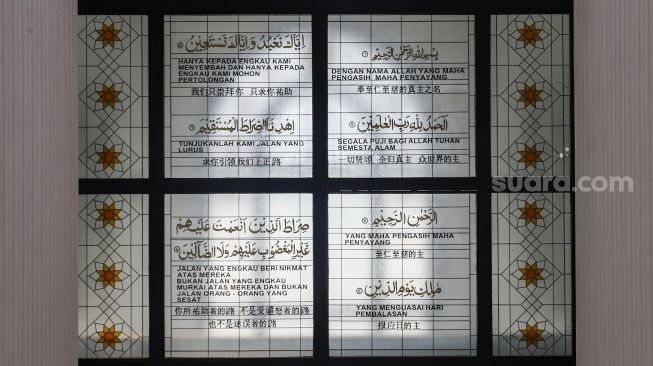 بِسْمِ اللهِ الرَّحْمٰنِ الرَّحِيْمِ ①
DENGAN NAMA ALLAH YANG MAHA
PENGASIH MAHA PENYAYANG
奉至仁至慈的真主之名
اَلْحَمْدُ لِلّٰهِ رَبِّ الْعٰلَمِيْنَ ②
SEGALA PUJI BAGI ALLAH TUHAN
SEMESTA ALAM
一切赞颂 全归真主 众世界的主
الرَّحْمٰنِ الرَّحِيْمِ ③
YANG MAHA PENGASIH MAHA
PENYAYANG
至仁至慈的
مٰلِكِ يَوْمِ الدِّيْنِ ④
YANG MENGUASAI HARI
PEMBALASAN
报应日的主
اِيَّاكَ نَعْبُدُ وَاِيَّاكَ نَسْتَعِيْنُ ⑤
HANYA KEPADA ENGKAU KAMI
MENYEMBAH DAN HANYA KEPADA
ENGKAU KAMI MOHON
PERTOLONGAN
我们只崇拜你 只求你祐助
اِهْدِنَا الصِّرَاطَ الْمُسْتَقِيْمَ ⑥
TUNJUKANLAH KAMI JALAN YANG
LURUS
求你引领我们上正路
صِرَاطَ الَّذِيْنَ اَنْعَمْتَ عَلَيْهِمْ
غَيْرِ الْمَغْضُوْبِ عَلَيْهِمْ وَلَا الضَّآلِّيْنَ ⑦
JALAN YANG ENGKAU BERI NIKMAT
ATAS MEREKA
BUKAN JALAN YANG ENGKAU
MURKAI ATAS MEREKA DAN BUKAN
JALAN ORANG - ORANG YANG
SESAT
你所祐助者的路 不是受谴怒者的路
也不是迷误者的路
suara.com